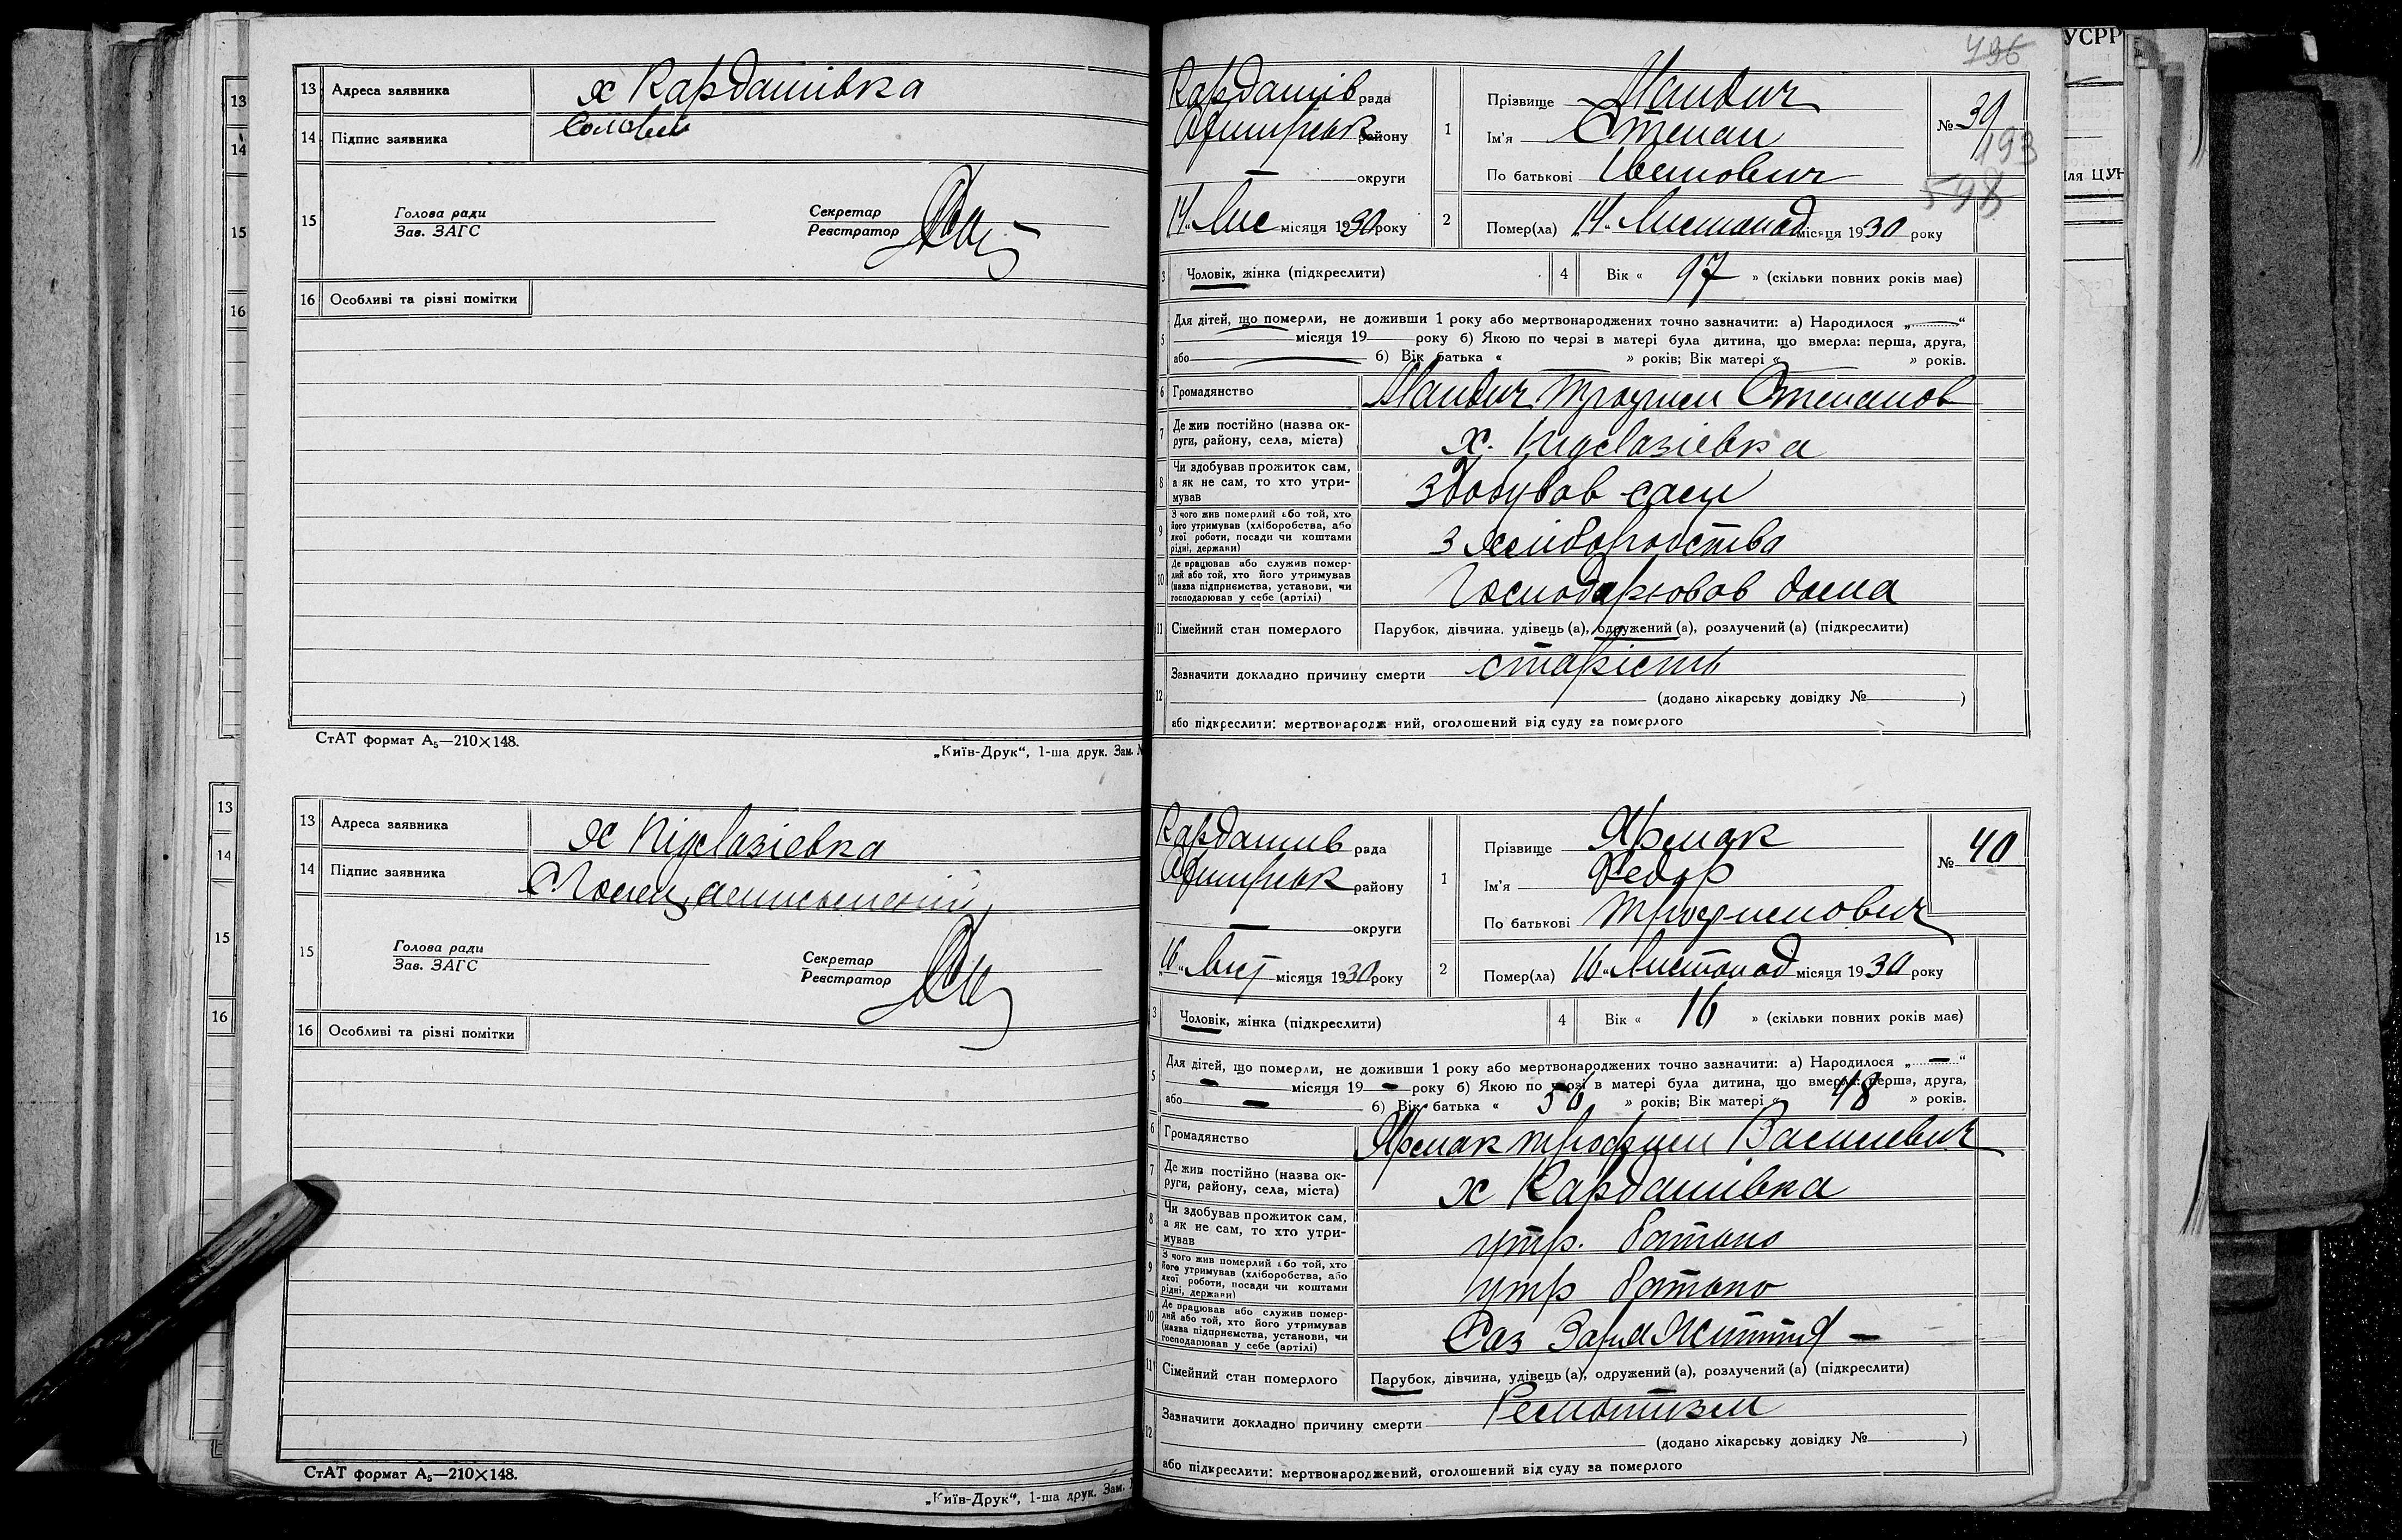 13 Адреса заявника х Кардашівка
14 Підпис заявника Соловей
15 Голова ради Секретар
Зав. ЗАГС Реєстратор
16 Особливі та різні помітки
СтАТ формат А5—210×148.
„Київ-Друк“, 1-ша друк. Зам. №
13 Адреса заявника х Підлазіевка
14 Підпис заявника
15 Голова ради Секретар
Зав. ЗАГС Реєстратор
16 Особливі та різні помітки
СтАТ формат А5—210×148.
„Київ-Друк“, 1-ша друк. Зам.
496
Кардашів рада
Охтирськ району
— округи
„14“ Лис місяця 1930 року
1 Прізвище Мандич
Ім'я Степан
По батькові Іванович
№ 39
193
598
2 Помер(ла) „14“ Листопад місяця 1930 року
3 Чоловік, жінка (підкреслити) 4 Вік « 97 » (скільки повних років має)
5 Для дітей, що померли, не доживши 1 року або мертвонароджених точно зазначити: а) Народилося „—“
місяця 19 року б) Якою по черзі в матері була дитина, що вмерла: перша, друга,
або б) Вік батька « » років; Вік матері « » років.
6 Громадянство Мандич Трофим Степанов
7 Де жив постійно (назва ок-
руги, району, села, міста) х. Підлазіевка
8 Чи здобував прожиток сам,
а як не сам, то хто утри-
мував здобував сам
9 З чого жив померлий або той, хто
його утримував (хліборобства, або
якої роботи, посади чи коштами
рідні, держави) з хліборобства
10 Де працював або служив помер-
лий або той, хто його утримував
(назва підприємства, установи, чи
господарював у себе (артілі) Господарював дома
11 Сімейний стан померлого Парубок, дівчина, удівець (а), одружений (а), розлучений (а) (підкреслити)
12 Зазначити докладно причину смерти старість
(додано лікарську довідку № )
або підкреслити: мертвонароджений, оголошений від суду за померлого
Кардашив рада
Охтирськ району
— округи
„16“ Лист місяця 1930 року
1 Прізвище Ярмак
Ім'я Федор
По батькові Трофимович
№ 40
2 Помер(ла) „16“ Листопад місяця 1930 року
3 Чоловік, жінка (підкреслити) 4 Вік « 16 » (скільки повних років має)
5 Для дітей, що померли, не доживши 1 року або мертвонароджених точно зазначити: а) Народилося „—“
— місяця 19 — року б) Якою по черзі в матері була дитина, що вмерла: перша, друга,
або — б) Вік батька « 50 » років; Вік матері « 48 » років.
6 Громадянство Ярмак Трофим Василевич
7 Де жив постійно (назва ок-
руги, району, села, міста) х Кардашівка
8 Чи здобував прожиток сам,
а як не сам, то хто утри-
мував утр. батько
9 З чого жив померлий або той, хто
його утримував (хліборобства, або
якої роботи, посади чи коштами
рідні, держави) утр батько
10 Де працював або служив помер-
лий або той, хто його утримував
(назва підприємства, установи, чи
господарював у себе (артілі) Соз Заря Життя —
11 Сімейний стан померлого Парубок, дівчина, удівець (а), одружений (а), розлучений (а) (підкреслити)
12 Зазначити докладно причину смерти Ремотизм
(додано лікарську довідку № )
або підкреслити: мертвонароджений, оголошений від суду за померлого
УСРР
для ЦУН
13
14
15
16
13
14
15
16